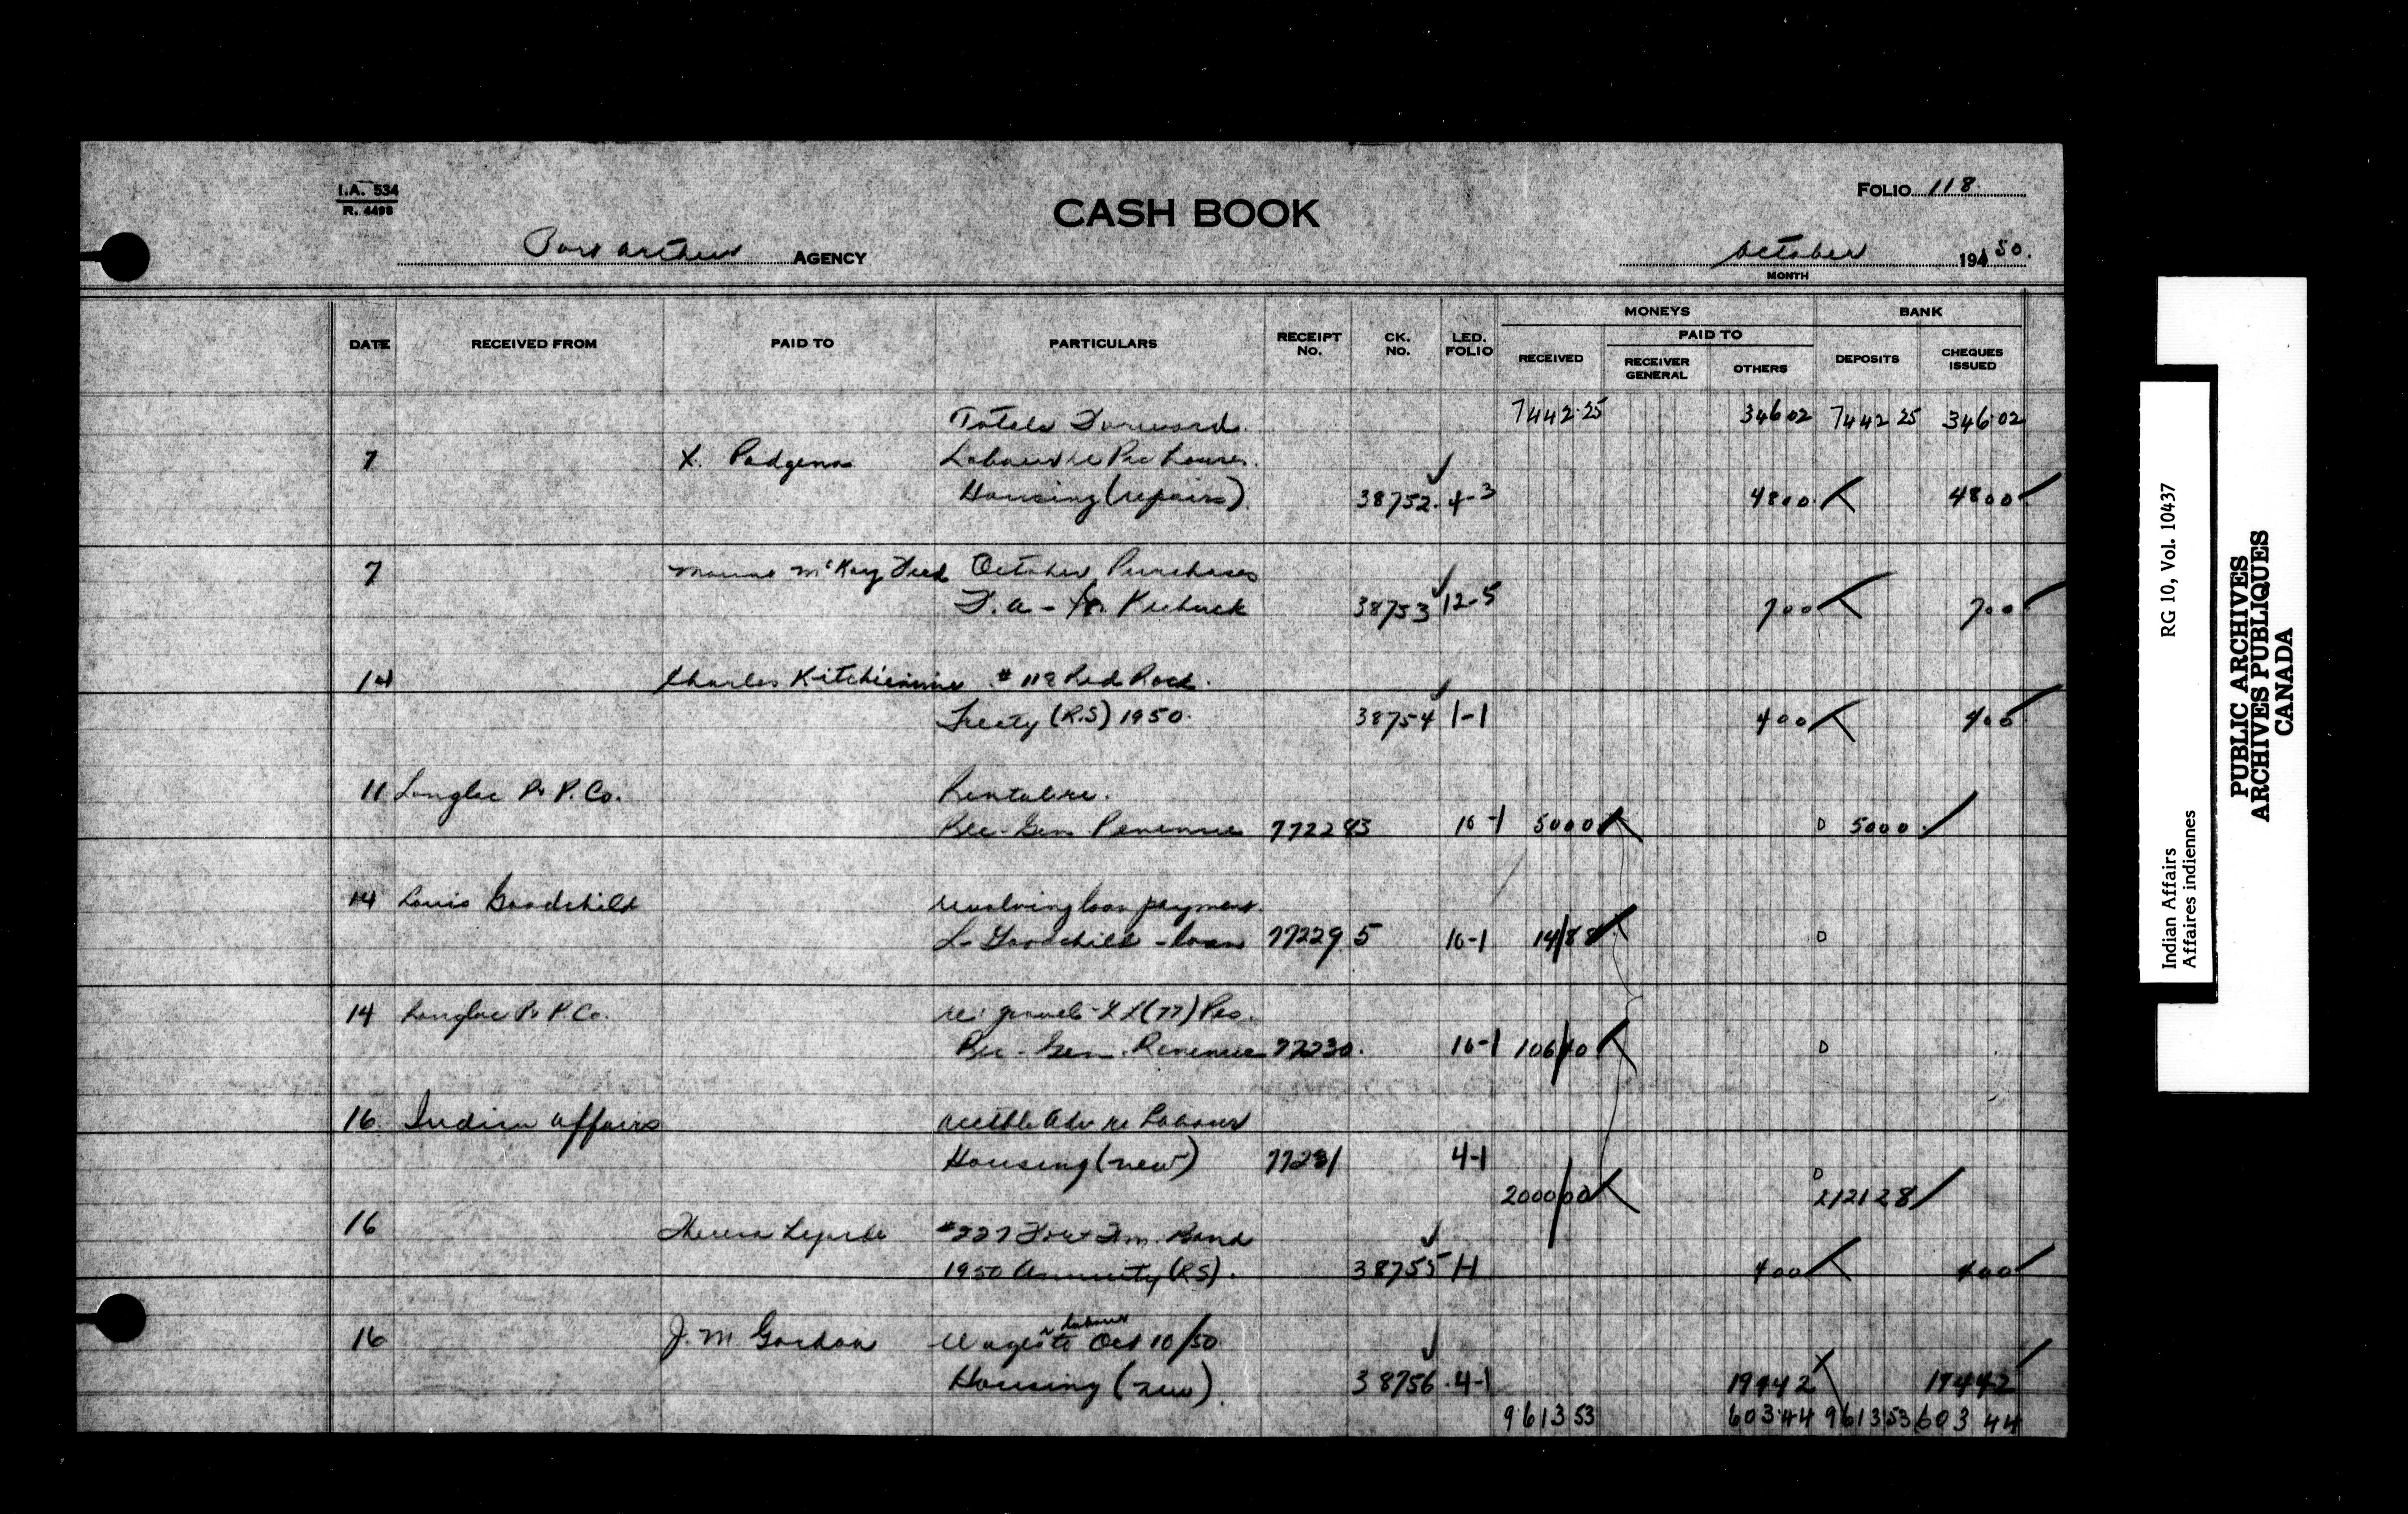 I.A. 534
R. 4498
CASH BOOK
FOLIO 118
Port Arthur AGENCY
October 194 50.
MONTH
DATE RECEIVED FROM PAID TO PARTICULARS RECEIPT No. CK. No. LED. FOLIO MONEYS BANK
RECEIVED PAID TO RECEIVER GENERAL OTHERS DEPOSITS CHEQUES ISSUED
Totals Forward. 7442.25 346 02 7442 25 346.02
7 X. Labour re
Housing (repairs). 38752. 4-3 48 00 48 00
7 McKay Feed October Purchases
38753 12-5 7 00 7 00
14 Charles # 112 Red Rock.
Treaty (R.S) 1950. 38754 1-1 4 00 4 00
11 Longlac P & P. Co. Rental re.
Rec-Gen Revenue 772283 10-1 50 00 50 00
14 Louis Goodchild revolving loan payment.
L. Goodchild - loan 77229 5 10-1 14/88
14 Longlac P & P. Co. re: gravel - L L (77) Res.
Rec-Gen. Revenue 77230. 10-1 106/40
16. Indian Affairs Adv re Labour
Housing (new) 77231 4-1
2000/00 2121 28
16 Theresa #227 Fort Wm. Band
1950 Annuity (R.S). 38755 1-1 4 00 4 00
16 J. M. Gordon Wages labour to Oct 10/50
Housing (new). 38756 4-1 194 42 194 42
9613 53 603.44 9613 53 603 44
Indian Affairs RG 10, Vol. 10437
Affaires indiennes
PUBLIC ARCHIVES
ARCHIVES PUBLIQUES
CANADA